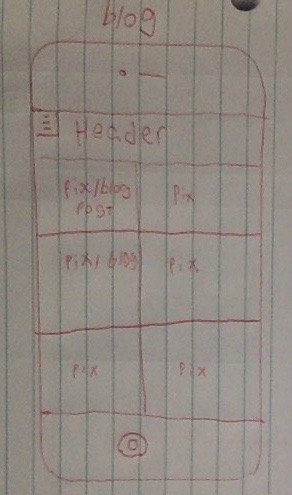 blog
Header
Pix/blog Pix
Post
Pix/blog Pix
Pix Pix